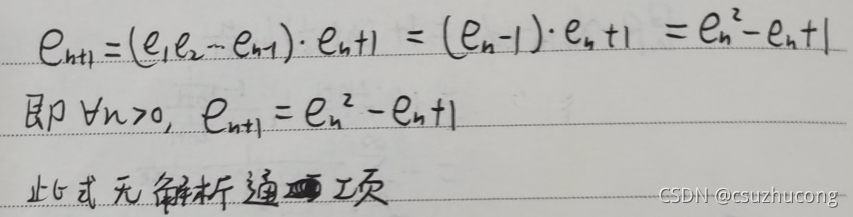 e_{n+1}=(e_1e_2--e_{n-1})·e_n+1 = (e_n-1)·e_n+1 = e_n^2-e_n+1
即 ∀n>0, e_{n+1}=e_n^2-e_n+1
此式无解析通项
CSDN @csuzhucong